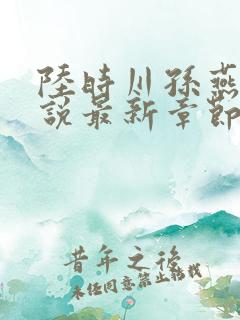 陸時川孫燕
說最新章節
昔年之後
未经同意禁止转载